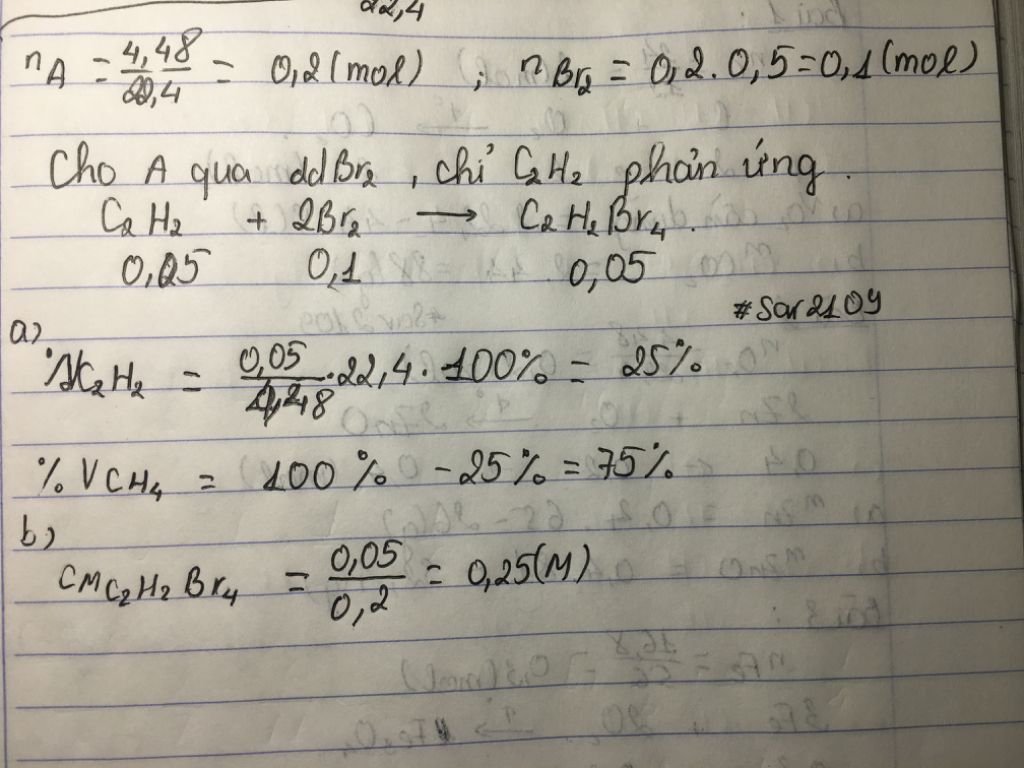 22,4
nA = 4,48/22,4 = 0,2 (mol) ; nBr2 = 0,2 . 0,5 = 0,1 (mol)
Cho A qua ddBr2 , chỉ C2H2 phản ứng .
C2H2 + 2Br2 → C2H2Br4.
0,05 0,1 0,05
#Sar2109
a)
C2H2 = 0,05/4,48 . 22,4 . 100% = 25%
% V CH4 = 100 % - 25% = 75%
b)
CM C2H2Br4 = 0,05/0,2 = 0,25(M)